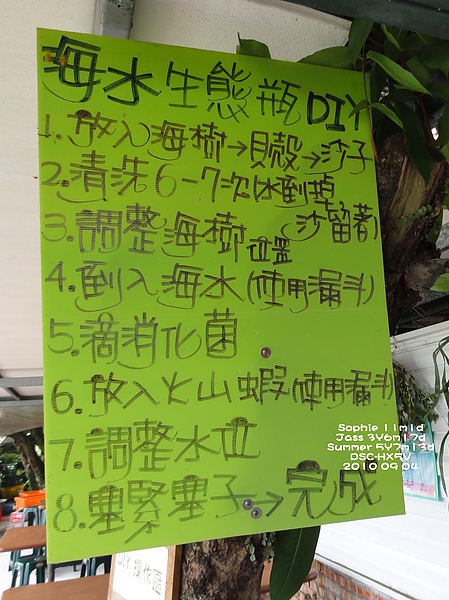 海水生態瓶DIY
1.放入海樹→貝殼→沙子
2.清洗6-7次(水倒掉
沙留著)
3.調整海樹位置
4.倒入海水(使用漏斗)
5.滴消化菌
6.放入火山蝦(使用漏斗)
7.調整水位
8.塞緊塞子→完成
DIY 操作區
Sophie 11m1d
Jass 3Y6m17d
Summer 5Y7m13d
DSC-HX5V
2010 09 04